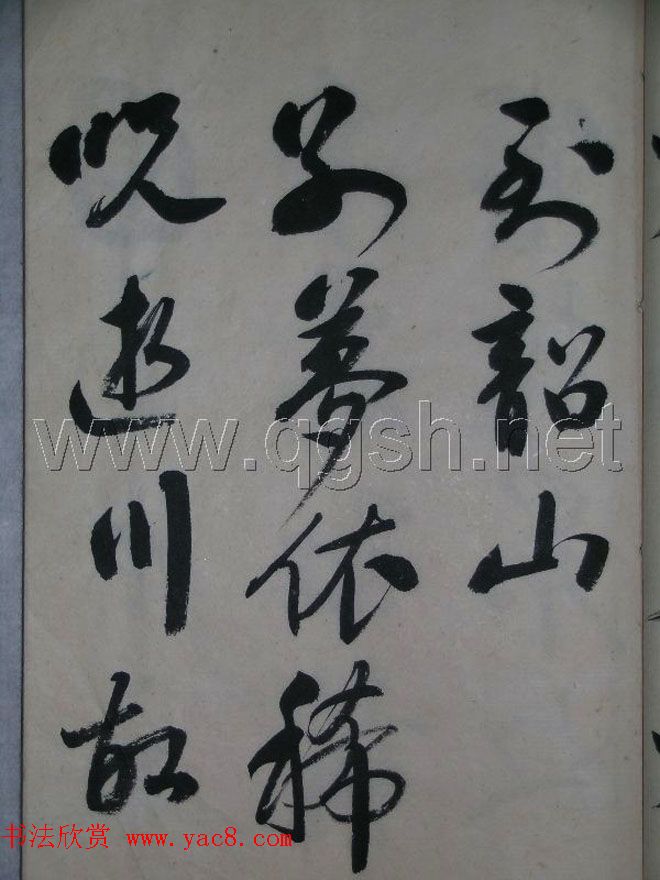 到韶山
别夢依稀
呪逝川故
www.qgsh.net
书法欣赏 www.yac8.com